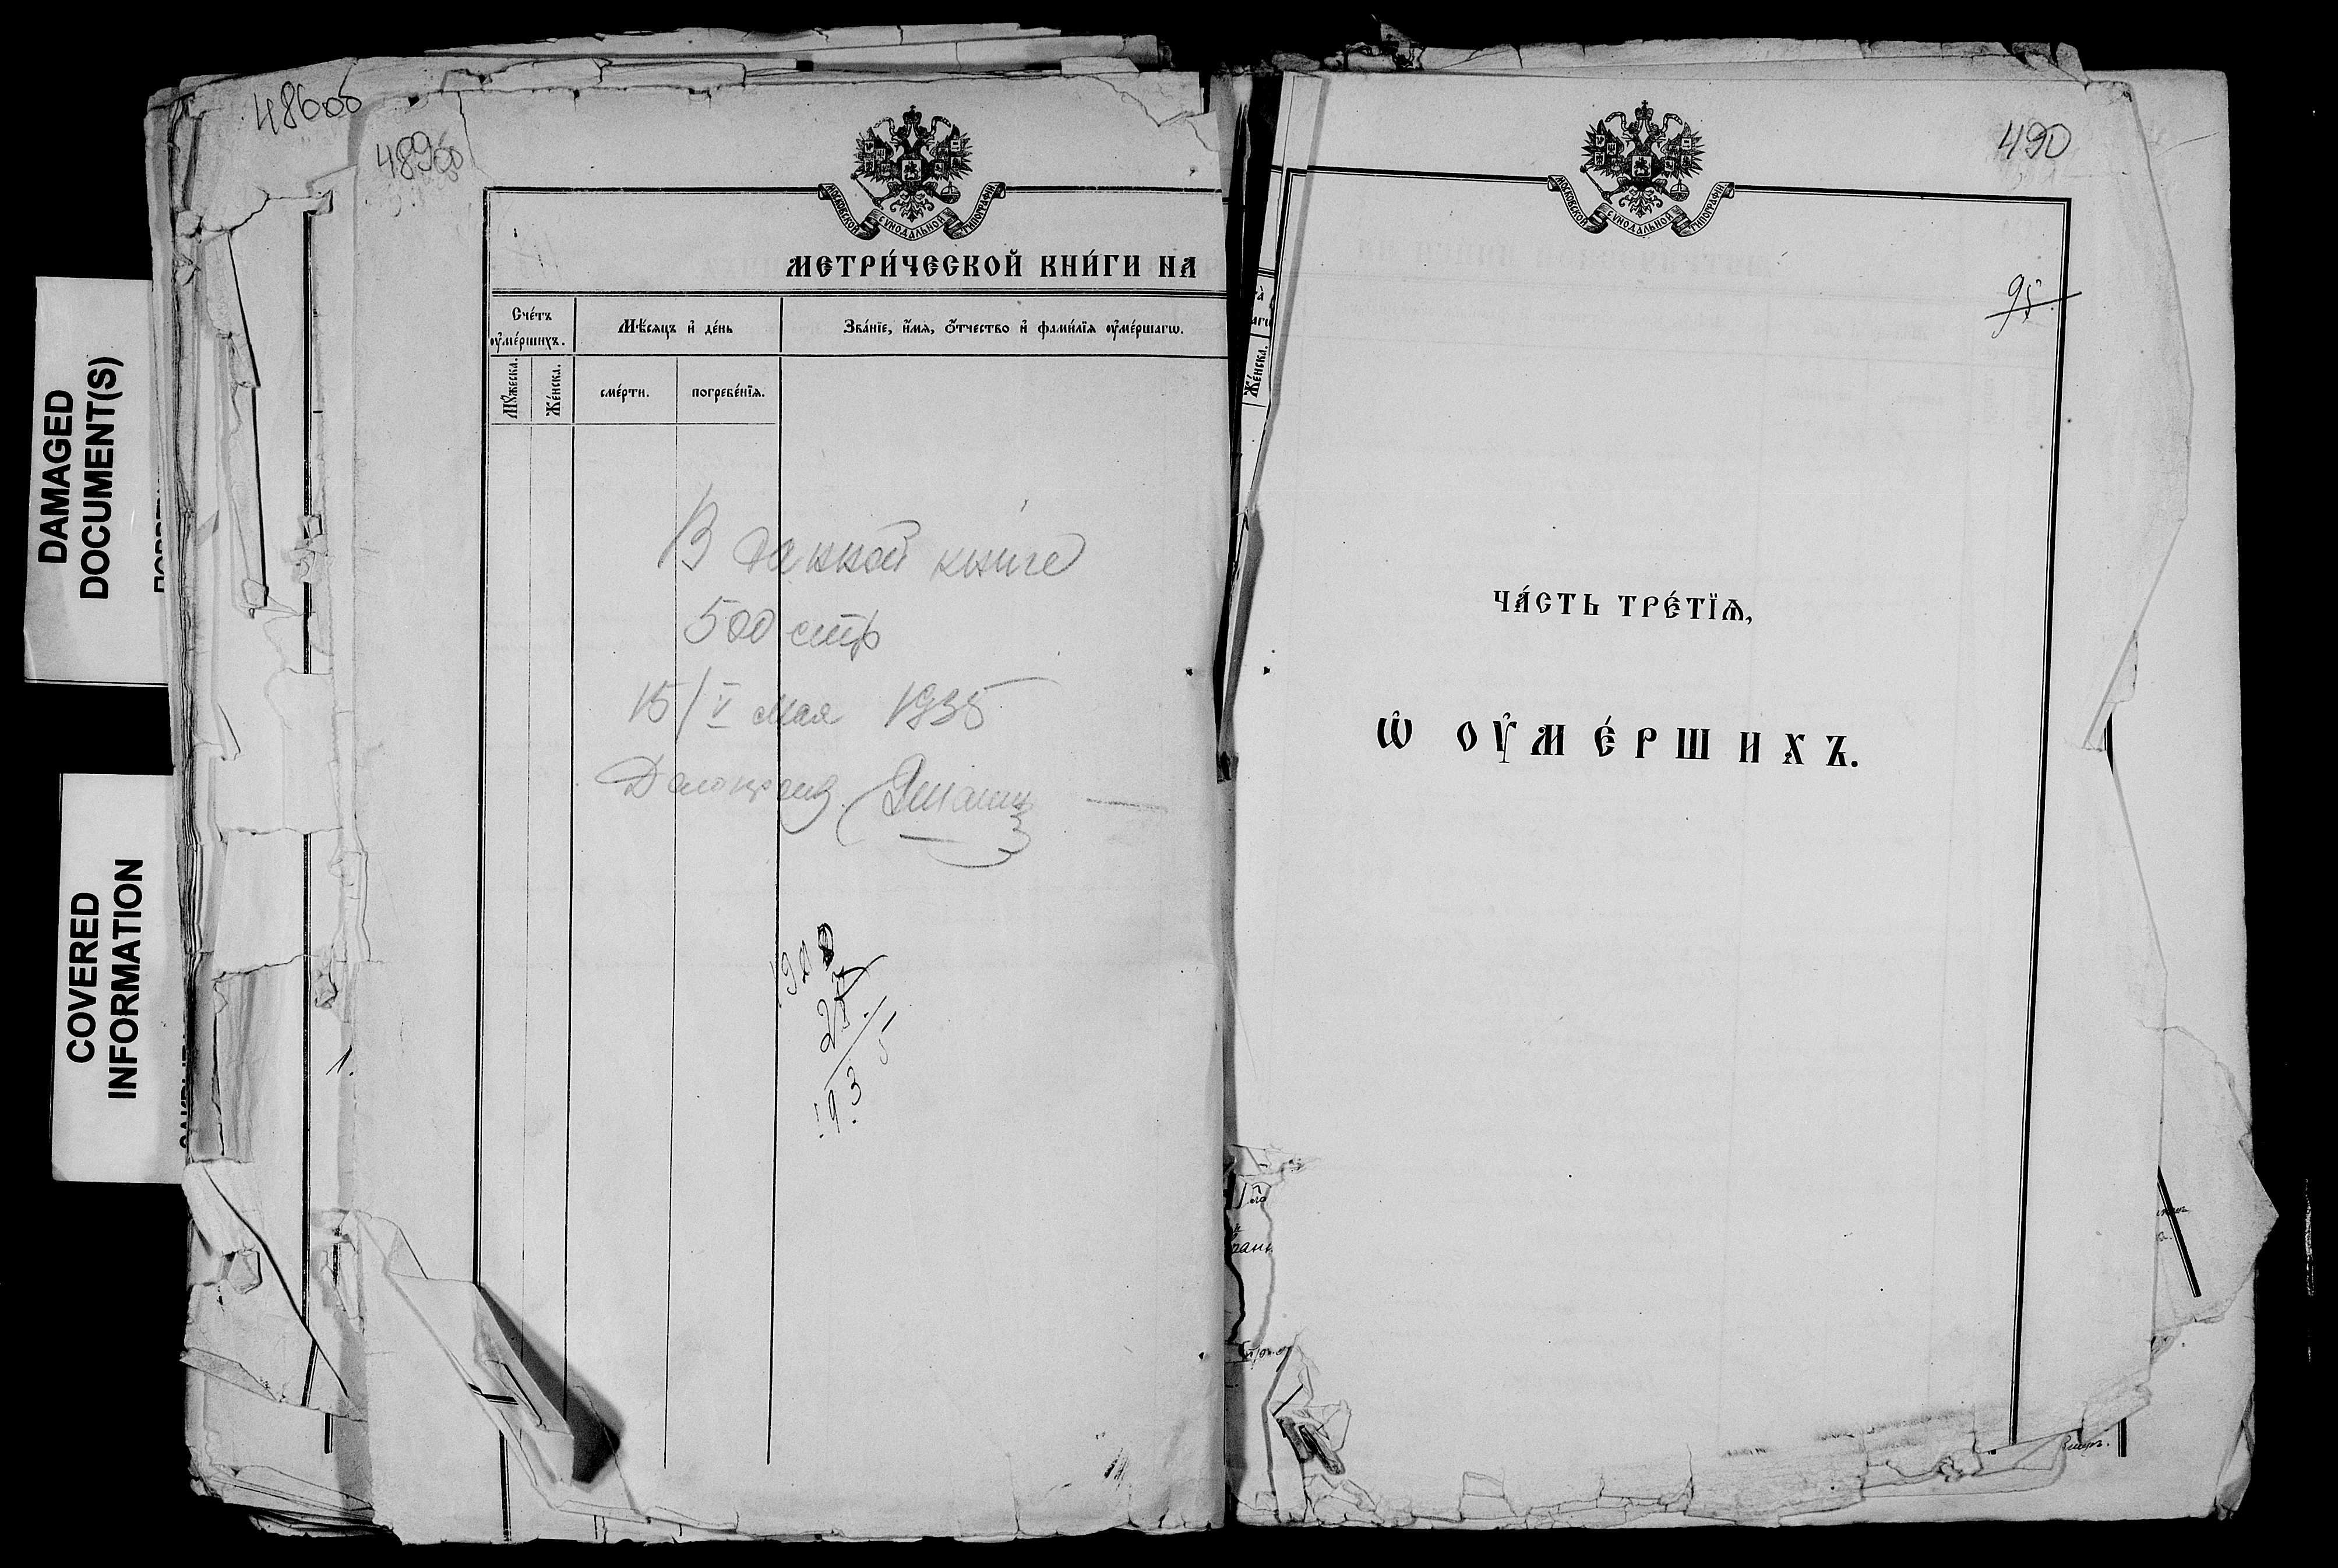 DAMAGED
DOCUMENT(S)
COVERED
INFORMATION
486об
489об
МОСКОВСКОЙ СѴНОДАЛЬНОЙ ТИПОГРАФІИ
МЕТРИ́ЧЕСКОЙ КНИ́ГИ НА
Сче́тъ
ᲂу҆ме́ршихъ.
Мѣ́сяцъ и҆ де́нь
Зва́нїе, и҆́мѧ, ѻ҆́тчество и҆ фами́лїѧ ᲂу҆ме́ршагѡ.
Мꙋ́жеска.
Же́нска.
сме́рти.
погребе́нїѧ.
В данной книге
500 стр
15/V мая 1935
1935
1.
490
МОСКОВСКОЙ СѴНОДАЛЬНОЙ ТИПОГРАФІИ
95
Же́нска.
ЧА́СТЬ ТРЕ́ТЇѦ,
Ѡ҆ ОУ҆МЕ́РШИХЪ.